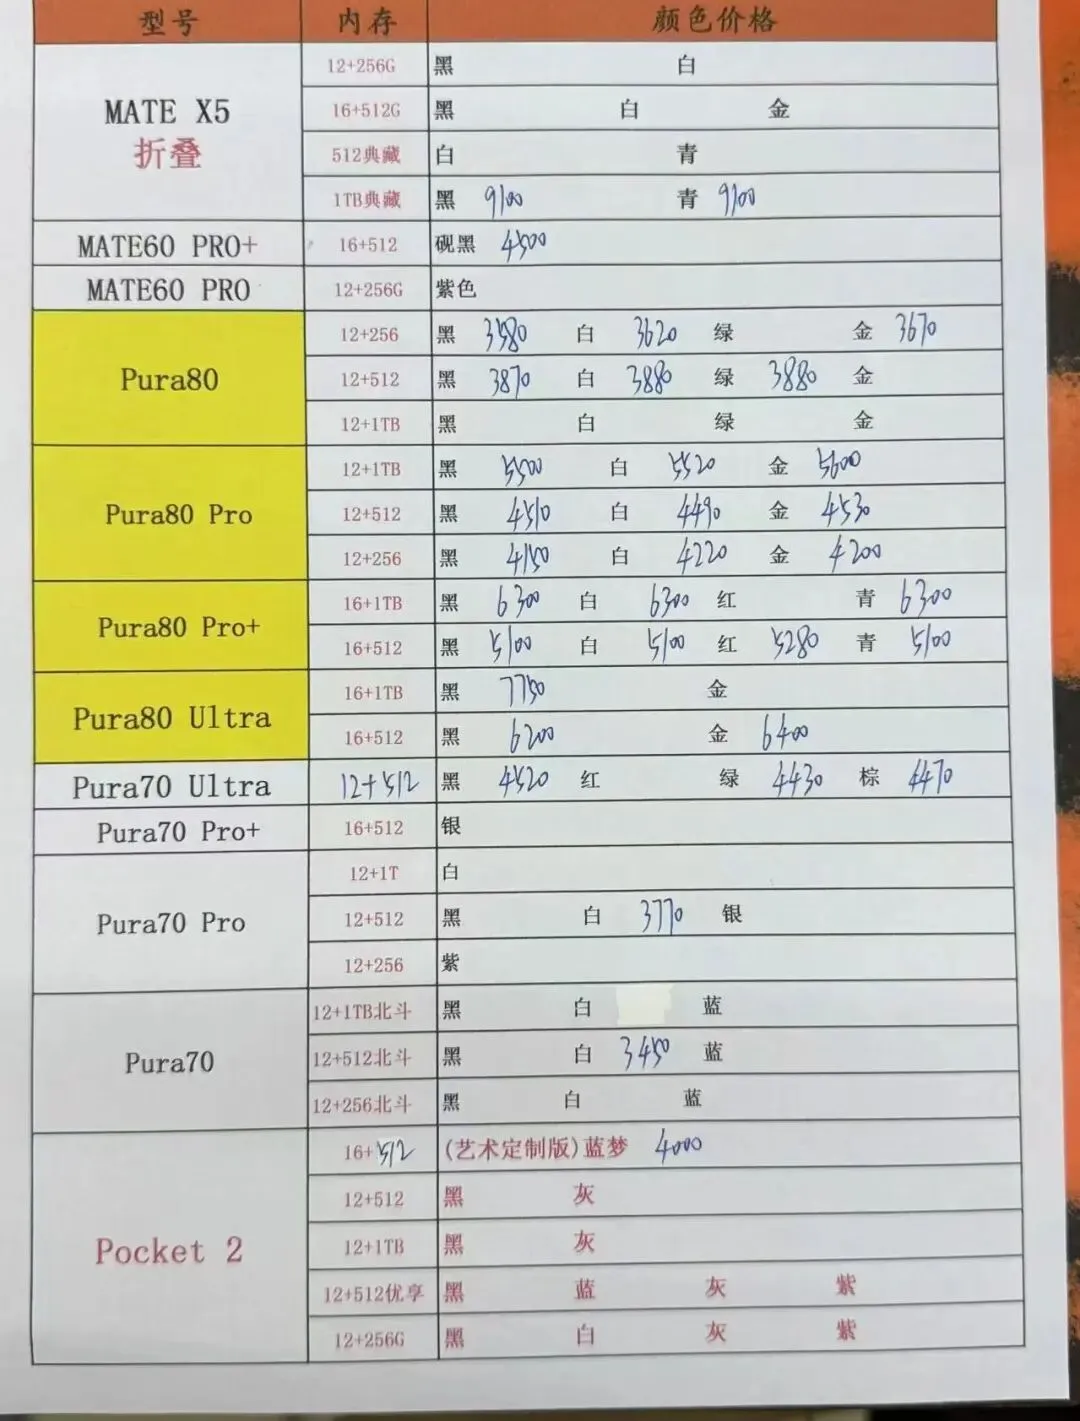 型号 内存 颜色价格
12+256G 黑 白
MATE X5 16+512G 黑 白 金
折叠 512典藏 白 青
1TB典藏 黑 9100 青 9100
MATE60 PRO+ 16+512 砚黑 4500
MATE60 PRO 12+256G 紫色
12+256 黑 3580 白 3620 绿 金 3670
Pura80 12+512 黑 3870 白 3880 绿 3880 金
12+1TB 黑 白 绿 金
12+1TB 黑 5500 白 5520 金 5600
Pura80 Pro 12+512 黑 4510 白 4490 金 4530
12+256 黑 4150 白 4220 金 4200
16+1TB 黑 6300 白 6300 红 青 6300
Pura80 Pro+ 16+512 黑 5100 白 5100 红 5280 青 5100
16+1TB 黑 7750 金
Pura80 Ultra 16+512 黑 6200 金 6400
Pura70 Ultra 12+512 黑 4520 红 绿 4430 棕 4470
Pura70 Pro+ 16+512 银
12+1T 白
Pura70 Pro 12+512 黑 白 3770 银
12+256 紫
12+1TB北斗 黑 白 蓝
Pura70 12+512北斗 黑 白 3450 蓝
12+256北斗 黑 白 蓝
16+512 (艺术定制版)蓝梦 4000
12+512 黑 灰
Pocket 2 12+1TB 黑 灰
12+512优享 黑 蓝 灰 紫
12+256G 黑 白 灰 紫